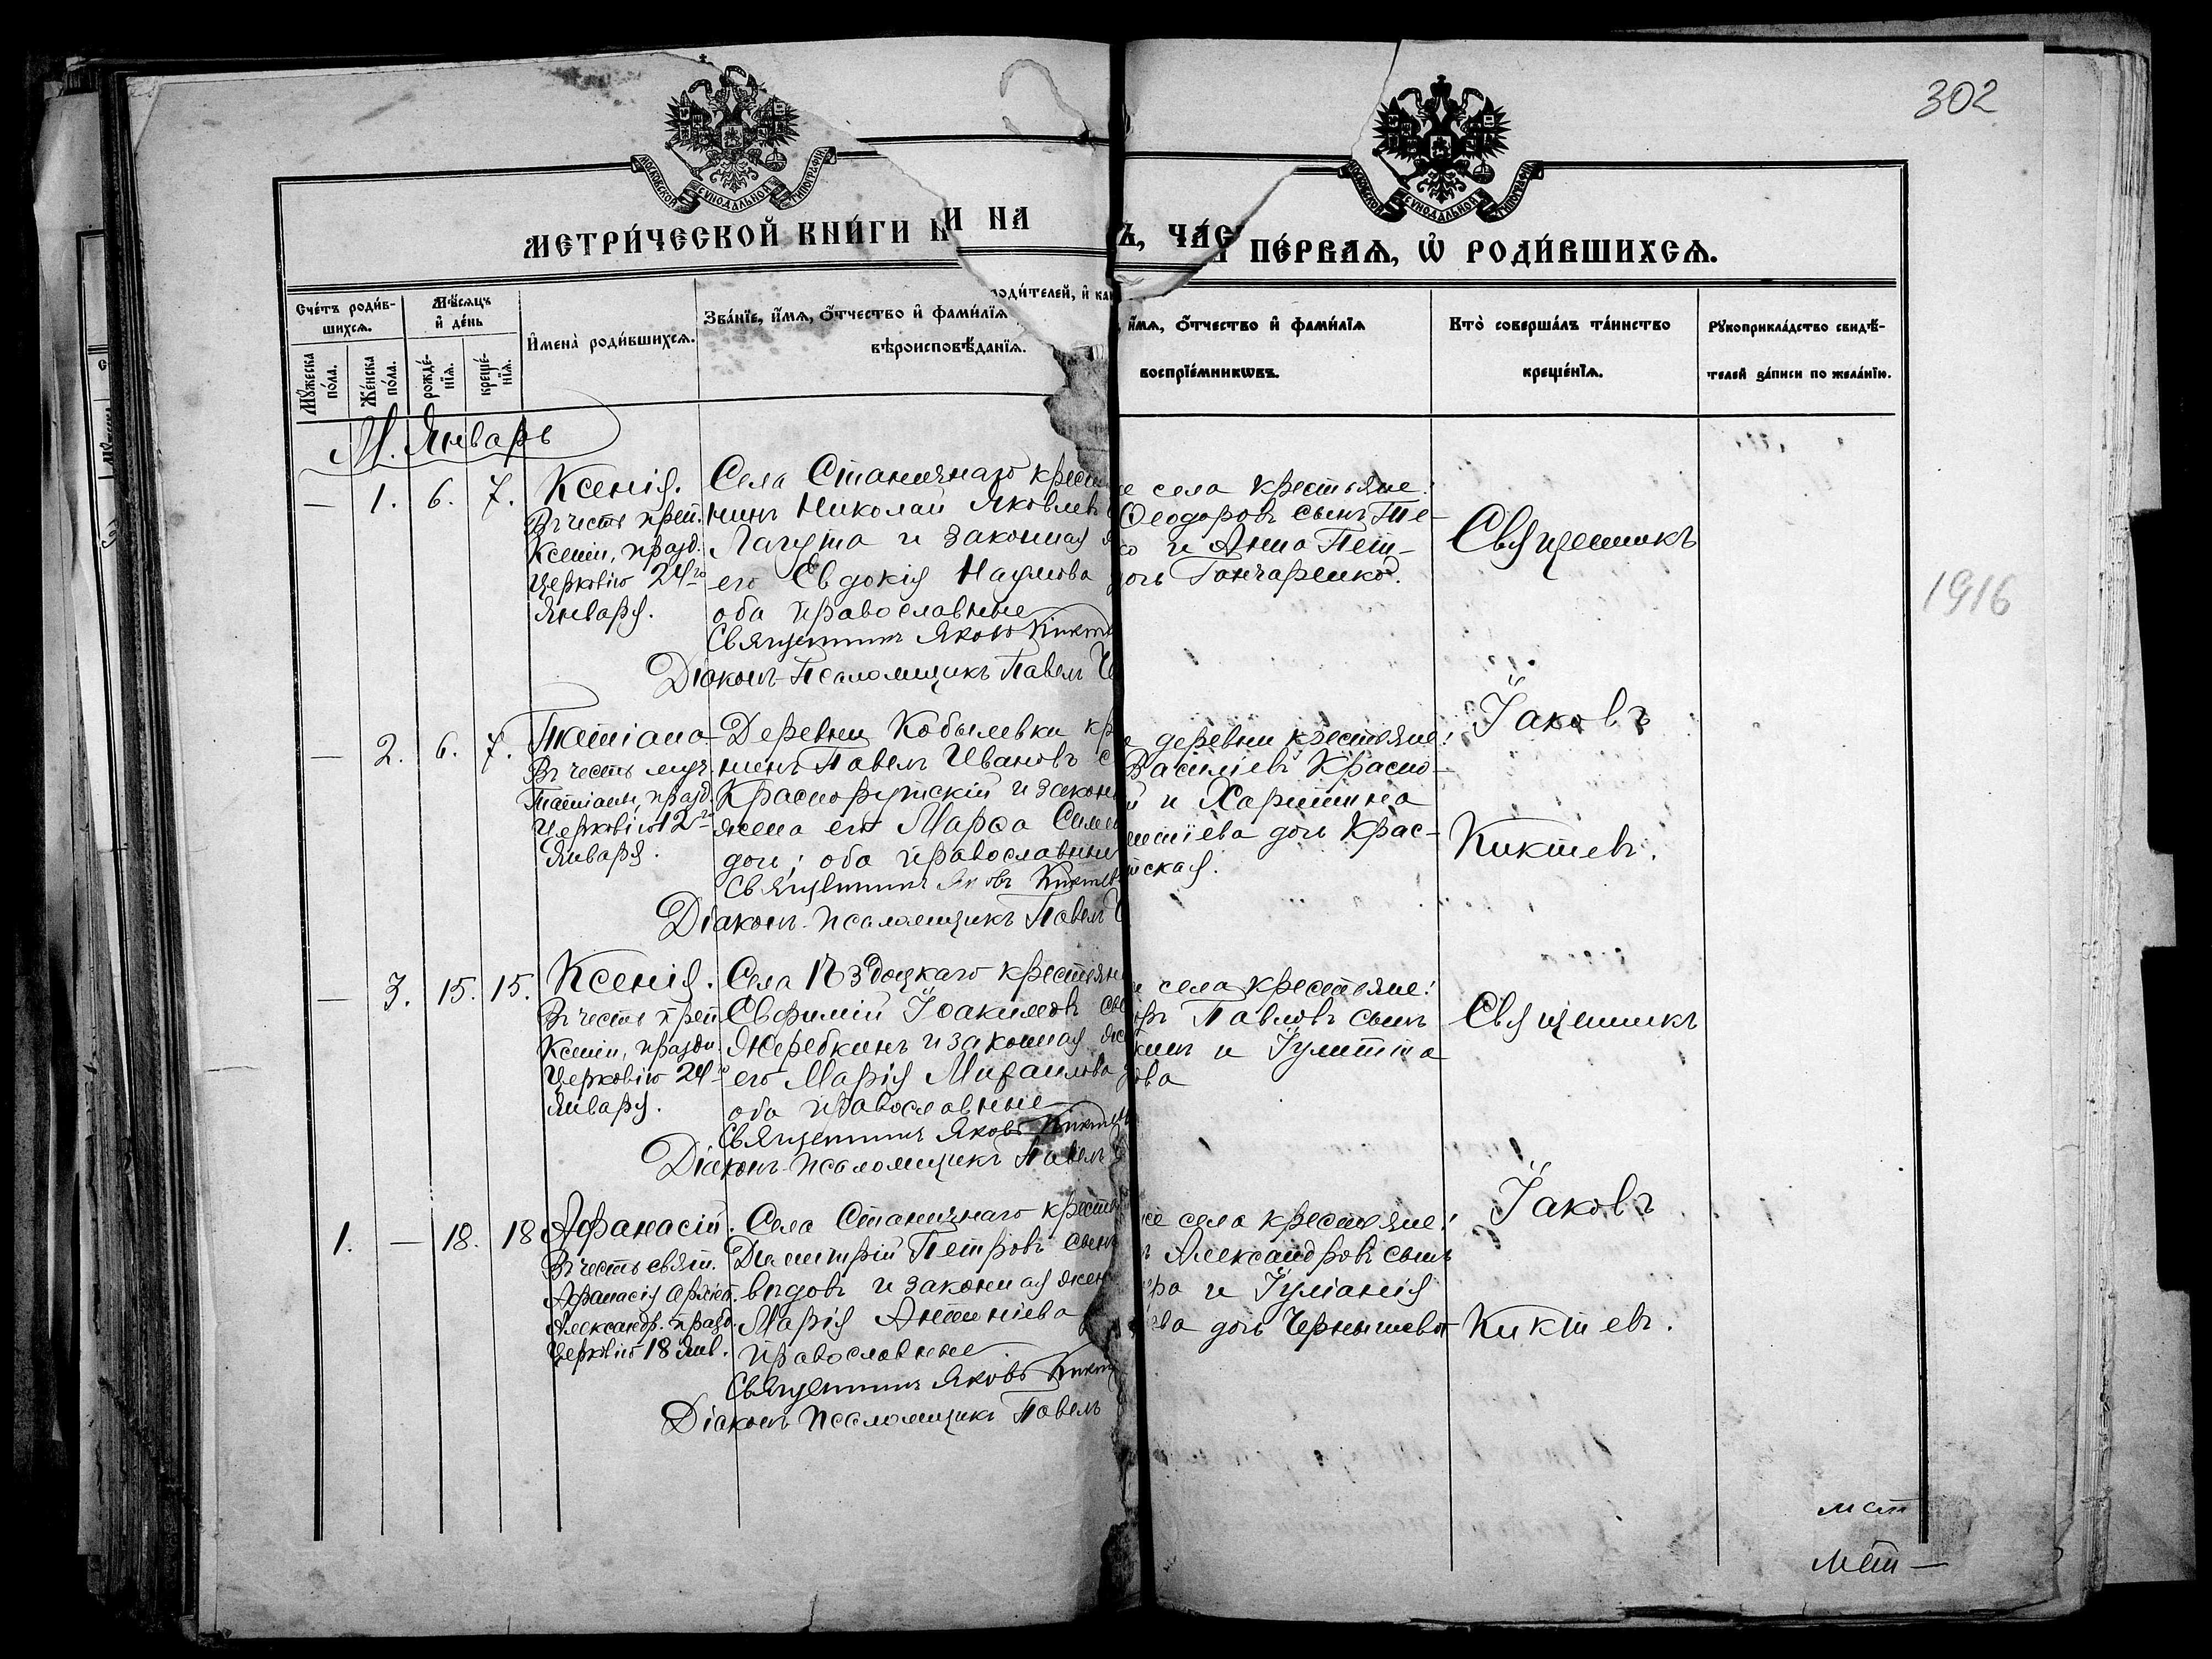 302
МОСКОВСКОЙ СѴНОДАЛЬНОЙ ТИПОГРАФІИ
МОСКОВСКОЙ СѴНОДАЛЬНОЙ ТИПОГРАФІИ
МЕТРИ́ЧЕСКОЙ КНИ́ГИ Н И НА
Ъ, ЧА́С ПЕ́РВАѦ, Ѽ РОДИ́ВШИХСѦ.
Сче́тъ роди́в-
шихсѧ.
Мꙋ́жеска
по́ла.
Же́нска
по́ла.
Мѣ́сѧцъ
и҆ де́нь
рожде́-
нїѧ.
креще́-
нїѧ.
И҆мена̀ роди́вшихсѧ.
Зва́нїе, и҆́мѧ, ѻ҆́тчество и҆ фами́лїѧ
роди́телей, и҆ ка
вѣроисповѣ́данїѧ.
, и҆́мѧ, ѻ҆́тчество и҆ фами́лїѧ
воспрїе́мникѡвъ.
Кто̀ соверша́лъ та́инство
креще́нїѧ.
Рꙋкоприкла́дство свидѣ́-
телей за́писи по жела́нїю.
М. Январь
— 1. 6. 7.
Ксенія.
Въ честь преп.
Ксеніи, празд.
Церковію 24го
Января.
Села Станичнаго крест
нинъ Николай Яковлевъ
Лагута и законная
его Евдокія Наумова
оба православные
Священникъ Яковъ Кикт
Діаконъ-Псаломщикъ Павелъ
е села крестьяне:
Ѳеодоровъ сынъ Те-
ко и Анна Пет-
дочь Гончаренкова.
Священникъ
Іаковъ
Киктевъ.
1916
— 2. 6. 7.
Татіана
Въ честь муч.
Татіаны, празд.
Церковію 12го
Января.
Деревни Кобылевки кр
нинъ Павелъ Ивановъ с
Краснорутскій и закон
жена его Марѳа Симео
дочь; оба православные
Священникъ Яковъ Киктев
Діаконъ-Псаломщикъ Павелъ
е деревни крестьяне:
Василіевъ Красно-
й и Харитина
ентіева дочь Крас-
тская.
— 3. 15. 15.
Ксенія.
Въ честь преп.
Ксеніи, праздн.
Церковію 24го
Января.
Села крестьян
Евфимій Іоакимовъ сы
Жеребкинъ и законная же
его Марія Михаилова
оба православные
Священникъ Яковъ Киктев
Діаконъ-Псаломщикъ Павелъ
е села крестьяне:
оръ Павловъ сынъ
кинъ и Іулитта
ова
Священникъ
Іаковъ
Киктевъ.
1. — 18. 18
Аѳанасій.
Въ честь свят.
Аѳанасія Архіеп.
Александр. празд.
Церковію 18 Янв.
Села Станичнаго крестья
Димитрій Петровъ сынъ
и законная жен
Марія Антоніева
православные
Священникъ Яковъ Кикт
Діаконъ Псаломщикъ Павелъ
же села крестьяне:
Александровъ сынъ
ра и Іуліанія
ева дочь Чернышева
мст
Мст —